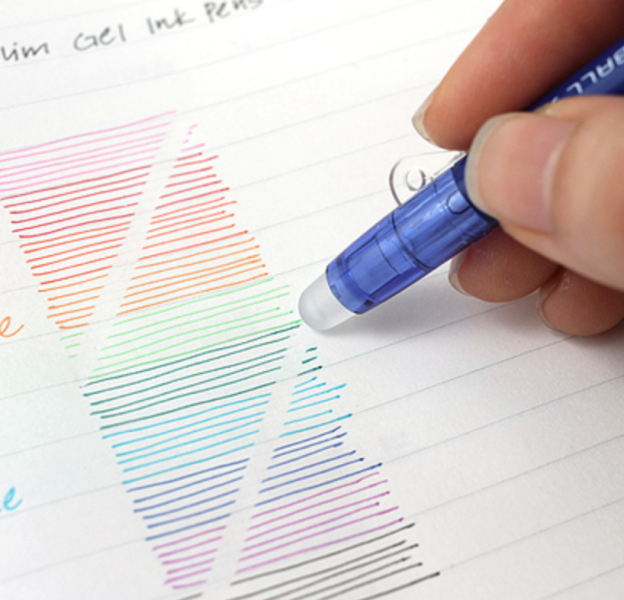 lim Gel Ink Pens
e
e
BALL